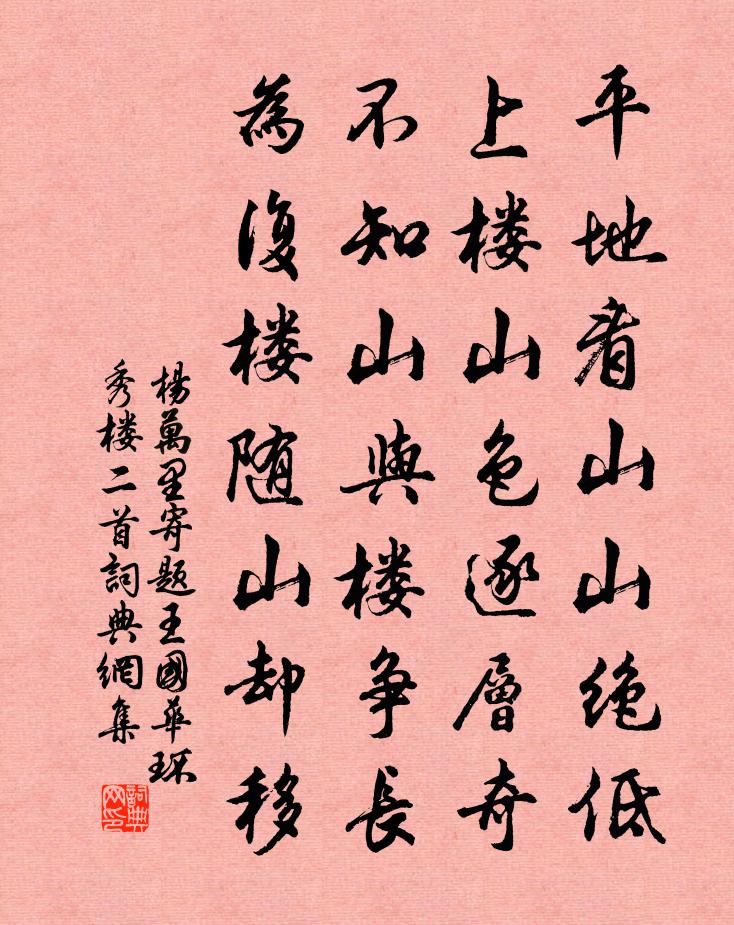 平地看山山絶低
上楼山色逐層奇
不知山與楼争長
為復楼随山却移
楊萬里寄題王國華環
秀楼二首詞典網集
詞典网印